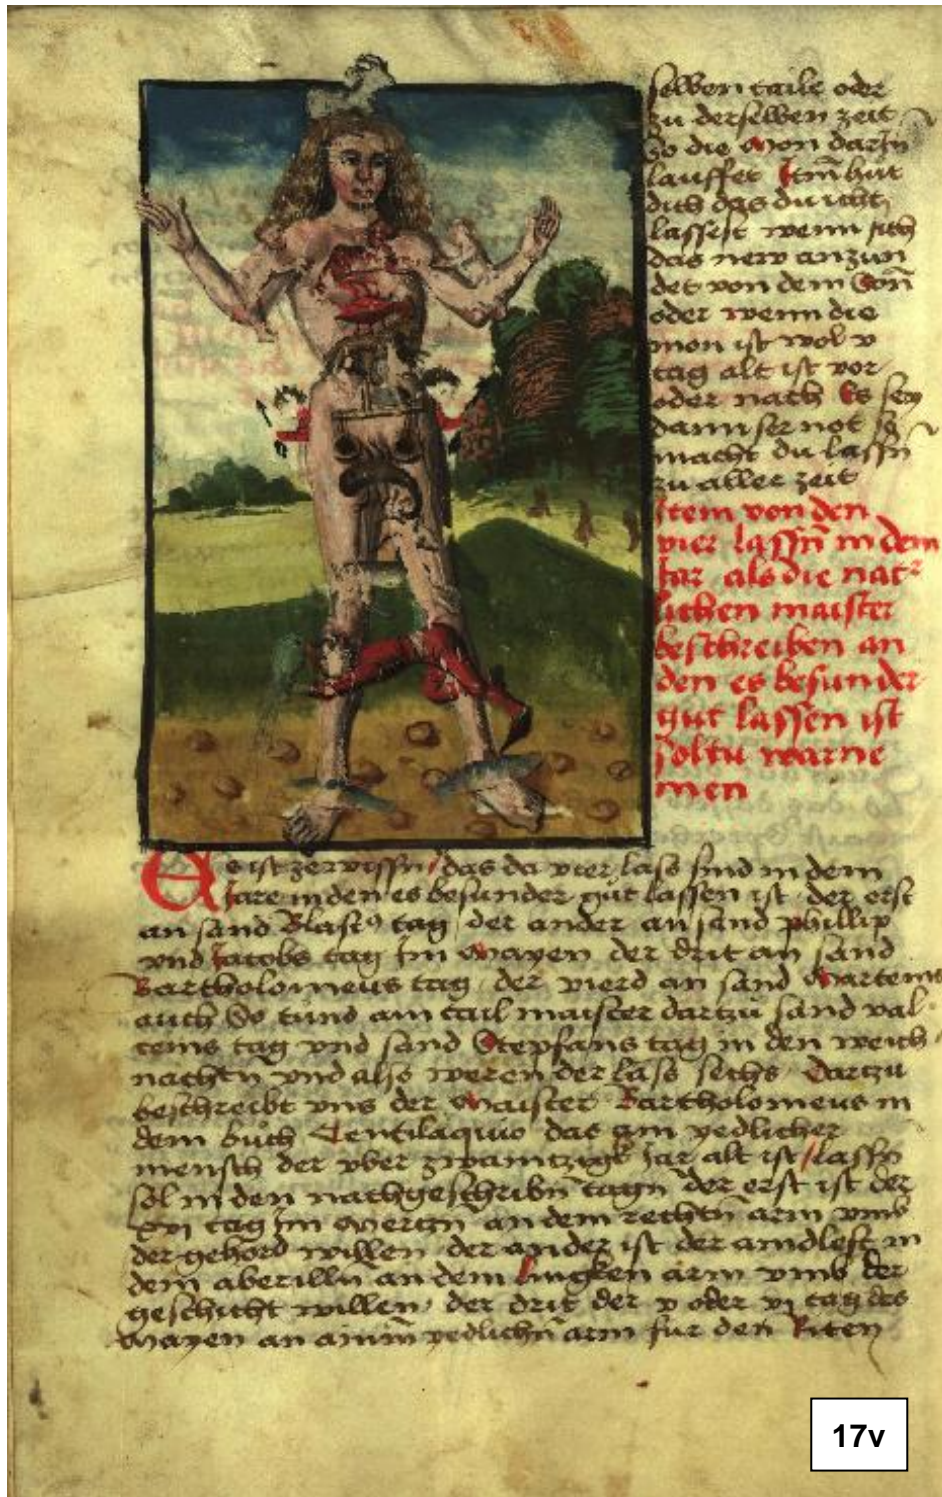 selben taile oder
zu derselben zeit
so die Mon darJn
lauffet Jtm̄ hüt
dich das du nicht
lassest wenn sich
das new anzün
det von dem Son̄
oder wenn die
mon ist wol v
tag alt ist vor
oder nach Es sey
dann ser not so
macht du lassn̄
zu aller zeit
Jtem von den
vier lassn̄ in dem
Jar als die nat
lichen maister
beschreiben an
den es besunder
gut lassen ist
soltu warne
men
Es ist ze wissn̄ / das da vier läss sind in dem
Jare in den es besunder güt lassen ist der erst
an sand Blasꝰ tag der ander an sand phillip
vnd Jacobs tag Jm Mayen der drit an sand
Bartholomeus tag der vierd an sand Marteins
auch So tund am tail maister dartzü sand val
teins tag vnd sand Stepfans tag in den weich
nachtn̄ vnd also weren der läss sechs Dartzu
beschreibt vns der Maister Bartholomeus in
dem büch Centilaquio das ain yedlicher
mensch der vber zwaintzigk Jar alt ist / lassn̄
sol in den nachgeschribn̄ tagn̄ der erst ist der
xvj tag Jm Mertzn̄ an dem rechtn̄ arm vmb
der gehord willen der ander ist der aindlest in
dem aberilln an dem lingken arm vmb der
gesicht willen der drit der v oder vj tag des
Mayen an ainm̄ yedlichn̄ arm fur den Riten
17v